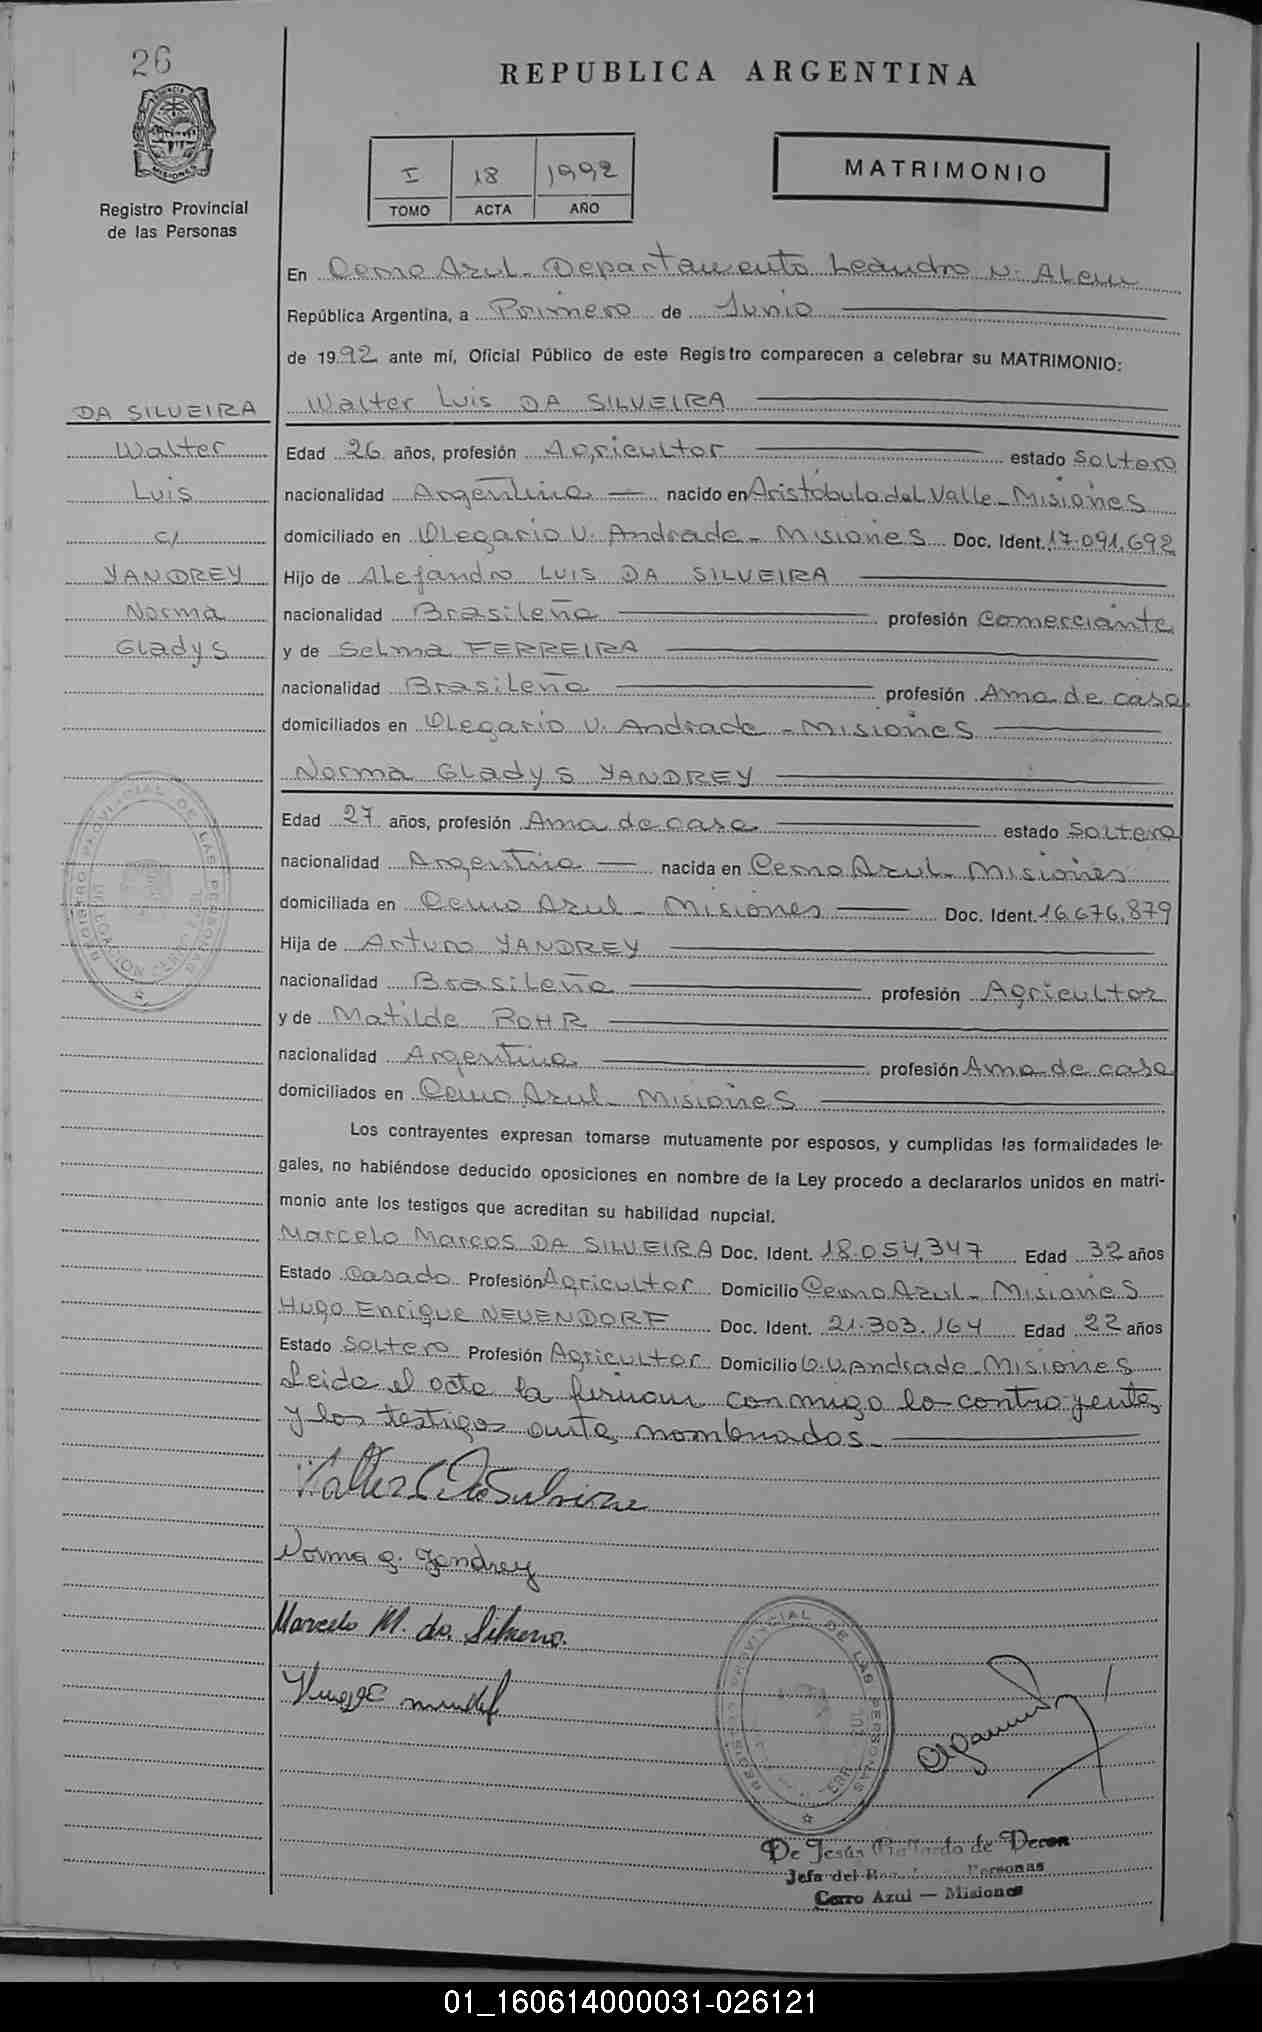 26
REPUBLICA ARGENTINA
MISIONES
Registro Provincial
de las Personas
I 18 1992
TOMO ACTA AÑO
MATRIMONIO
En Cerro Azul - Departamento Leandro N. Alem
República Argentina, a Primero de Junio
de 1992 ante mí, Oficial Público de este Registro comparecen a celebrar su MATRIMONIO:
DA SILVEIRA
Walter
Luis
c/
YANDREY
Norma
Gladys
Walter Luis DA SILVEIRA
Edad 26 años, profesión Agricultor estado Soltero
nacionalidad Argentina nacido en Aristóbulo del Valle - Misiones
domiciliado en Olegario V. Andrade - Misiones Doc. Ident. 17.091.692
Hijo de Alejandro LUIS DA SILVEIRA
nacionalidad Brasileña profesión Comerciante
y de Selma FERREIRA
nacionalidad Brasileña profesión Ama de casa
domiciliados en Olegario V. Andrade - Misiones
Norma Gladys YANDREY
Edad 27 años, profesión Ama de casa estado Soltera
nacionalidad Argentina nacida en Cerro Azul - Misiones
domiciliada en Cerro Azul - Misiones Doc. Ident. 16.676.879
Hija de Arturo YANDREY
nacionalidad Brasileña profesión Agricultor
y de Matilde ROHR
nacionalidad Argentina profesión Ama de casa
domiciliados en Cerro Azul - Misiones
Los contrayentes expresan tomarse mutuamente por esposos, y cumplidas las formalidades le-
gales, no habiéndose deducido oposiciones en nombre de la Ley procedo a declararlos unidos en matri-
monio ante los testigos que acreditan su habilidad nupcial.
Marcelo Marcos DA SILVEIRA Doc. Ident. 18.054.347 Edad 32 años
Estado Casado Profesión Agricultor Domicilio Cerro Azul - Misiones
Hugo Enrique NEUENDORF Doc. Ident. 21.303.164 Edad 22 años
Estado Soltero Profesión Agricultor Domicilio O.V. Andrade - Misiones
Leida el acta la firman conmigo lo contrayente,
y los testigos ante nombrados.
REGISTRO PROVINCIAL DE LAS PERSONAS
Walter L Da Silveira
Norma G. Yandrey
Marcelo M. da Silveira.
REGISTRO PROVINCIAL DE LAS PERSONAS
De Jesús Gallardo de Deron
Jefa del Personas
Cerro Azul — Misiones
01_160614000031-026121